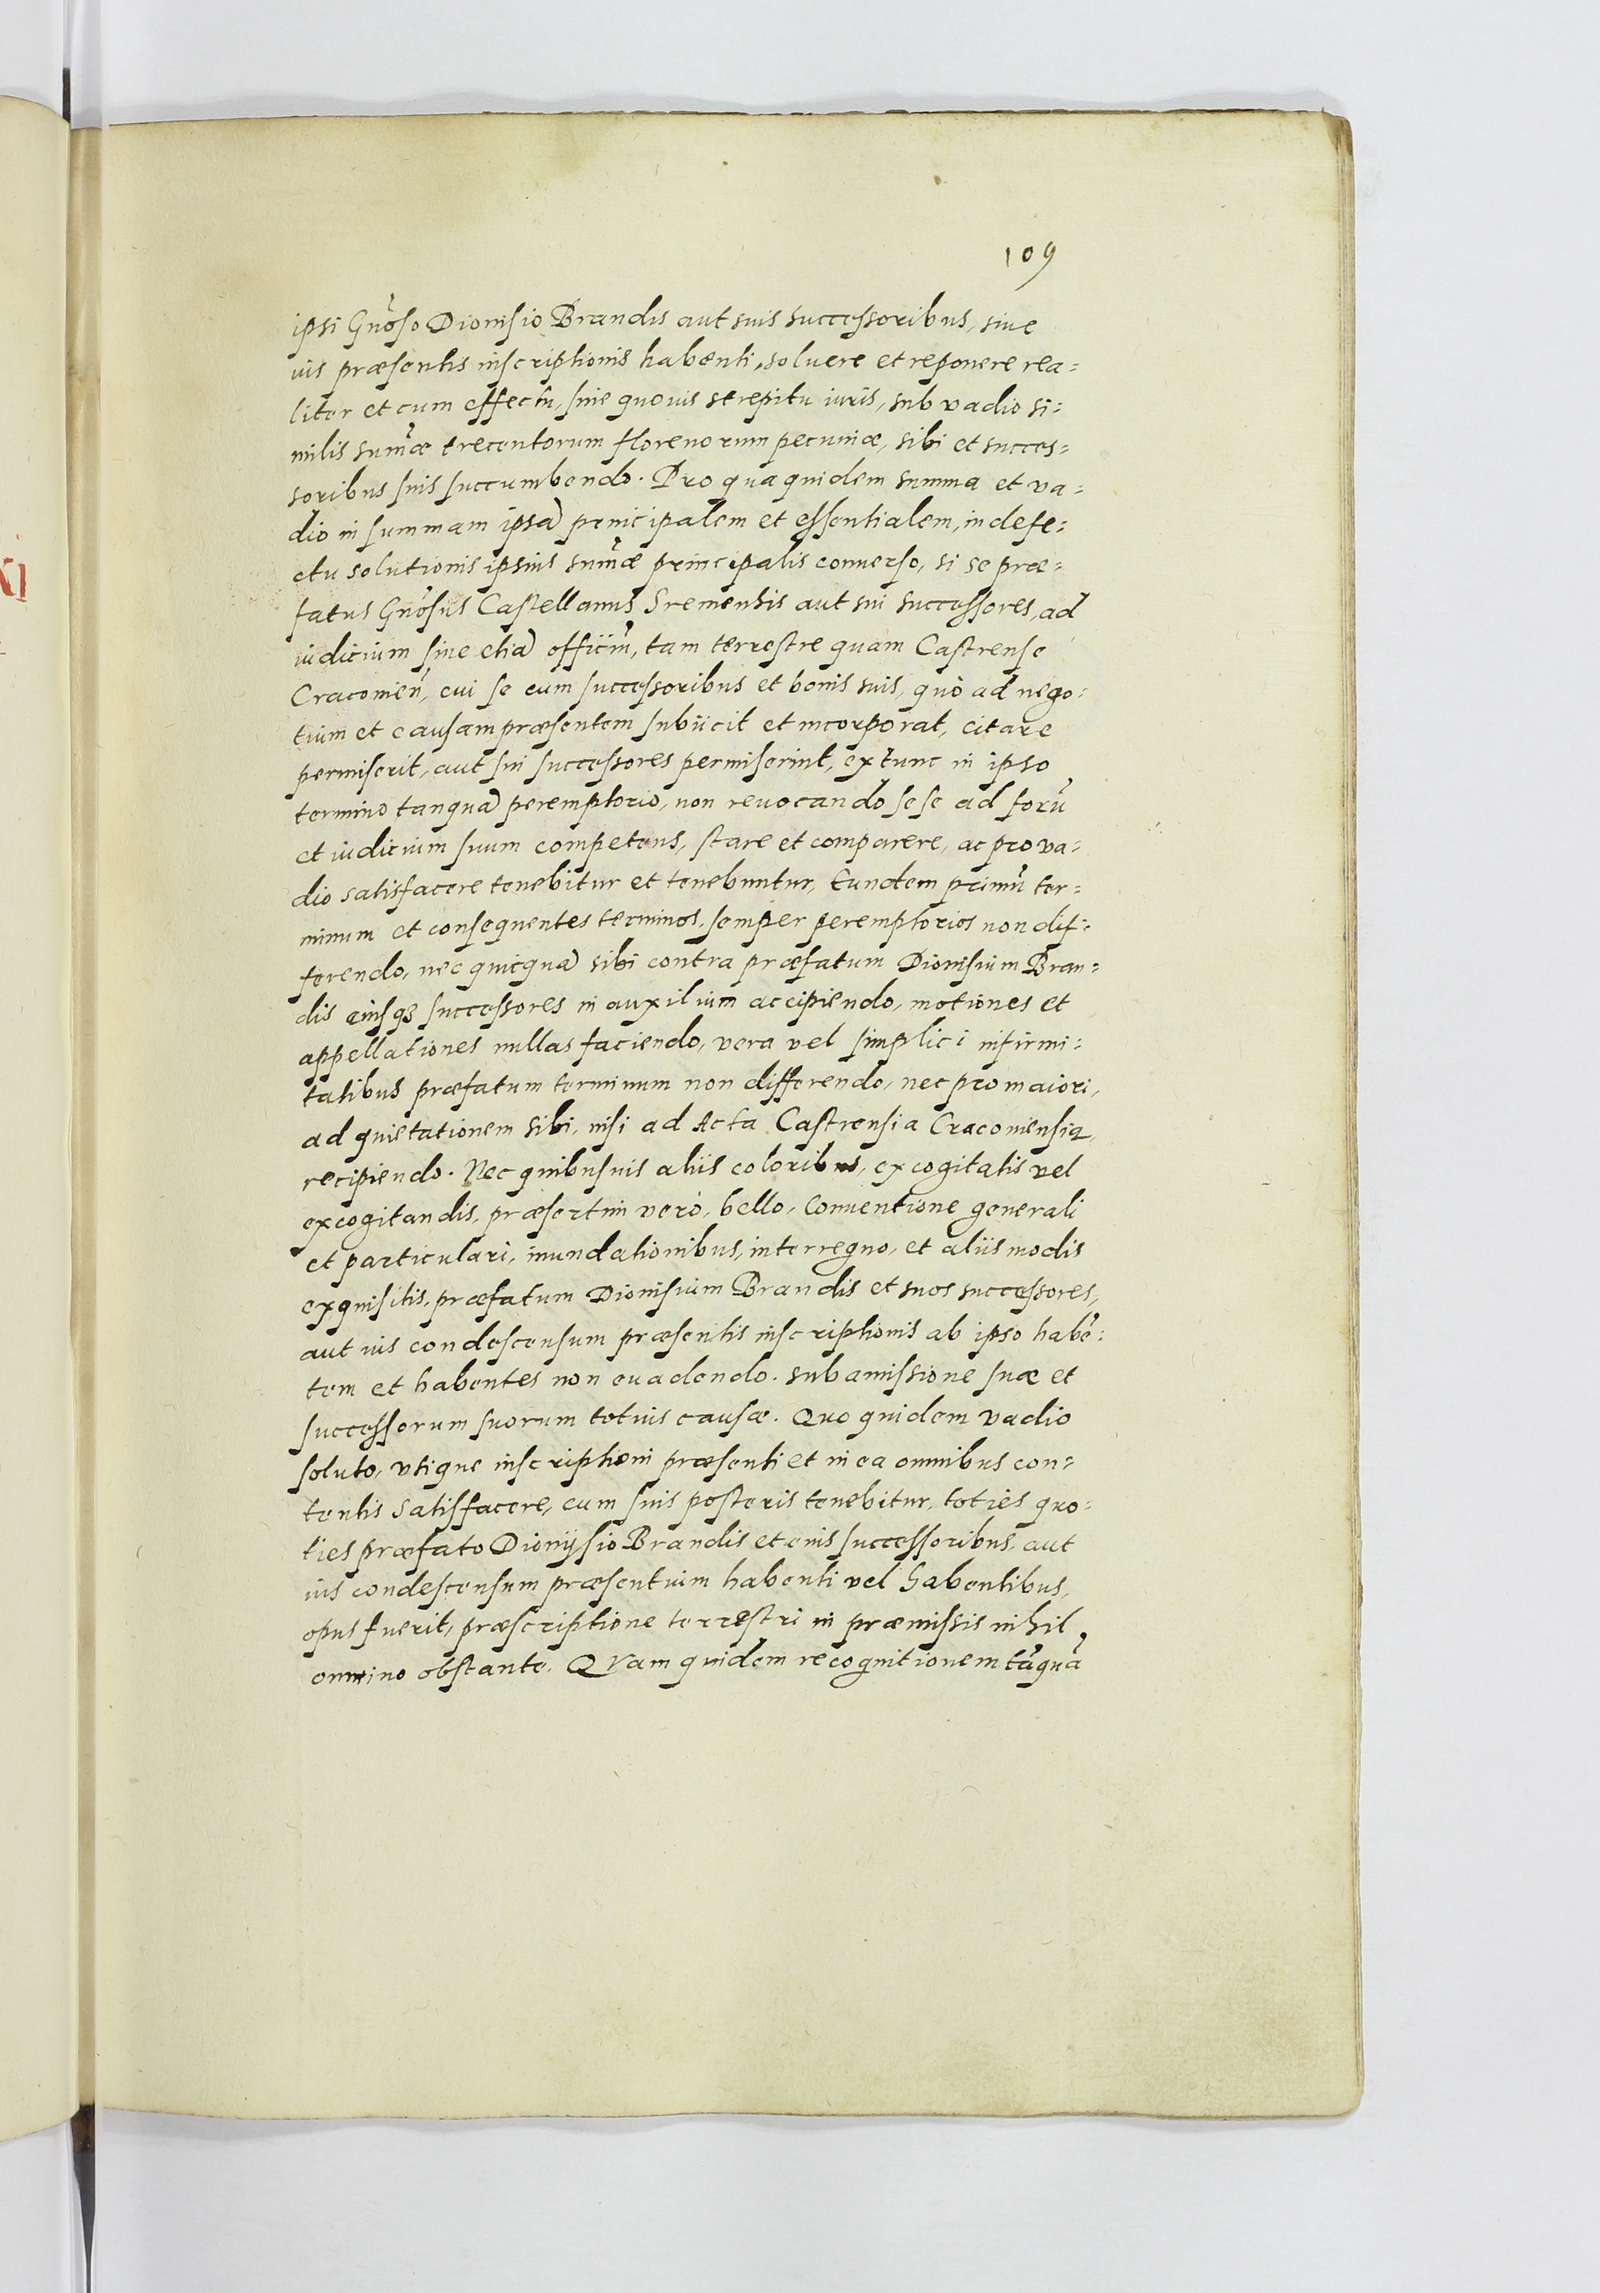 109
ipsi Gnōso Dionisio Brandis aut suis successoribus, siue
ius præsentis inscriptionis habenti, soluere et reponere rea=
liter et cum effectu, sine quouis strepitu iuris, sub vadio si=
milis sum̄æ trecentorum florenorum pecuniæ, sibi et succes=
soribus suis succumbendo. Pro qua quidem summa et va=
dio in summam ipsā principalem et essentialem, in defe=
ctu solutionis ipsius sum̄æ principalis conuerso, si se præ=
fatus Gnōsus Castellanus Sremensis aut sui successores, ad
iudicium siue etiā officiū, tam terrestre quam Castrense
Cracouien̄, cui se cum successoribus et bonis suis, quò ad nego=
tium et causam præsentem subijcit et incorporat, citare
permiserit, aut sui successores permiserint, extunc in ipso
termino tanquā peremptorio, non reuocando sese ad forū
et iudicium suum competens, stare et comparere, ac pro va=
dio satisfacere tenebitur et tenebuntur, Eundem primū ter=
minum et consequentes terminos, semper peremptorios non dif=
ferendo, nec quicquā sibi contra præfatum Dionisium Bran=
dis eiusq3 successores in auxilium accipiendo, motiones et
appellationes nullas faciendo, vera vel simplici infirmi=
tatibus præfatum terminum non differendo, nec pro maiori,
ad quietationem sibi, nisi ad Acta Castrensia Cracouiensia,
recipiendo. Nec quibusuis aliis coloribus, excogitatis vel
excogitandis, præsertim verò, bello, Conuentione generali
et particulari, inundationibus, interregno, et aliis modis
exquisitis, præfatum Dionisium Brandis et suos successores,
aut ius condescensum præsentis inscriptionis ab ipso habē=
tem et habentes non euadendo. sub amissione suæ et
successorum suorum totius causæ. Quo quidem vadio
soluto, vtique inscriptioni præsenti et in ea omnibus con=
tentis satisfacere, cum suis posteris tenebitur, toties quo=
ties præfato Dionysio Brandis et eius successoribus, aut
ius condescensum præsentium habenti vel habentibus,
opus fuerit, præscriptione terrestri in præmissis nihil
omnino obstante. QVam quidem recognitionem tāquā
XI